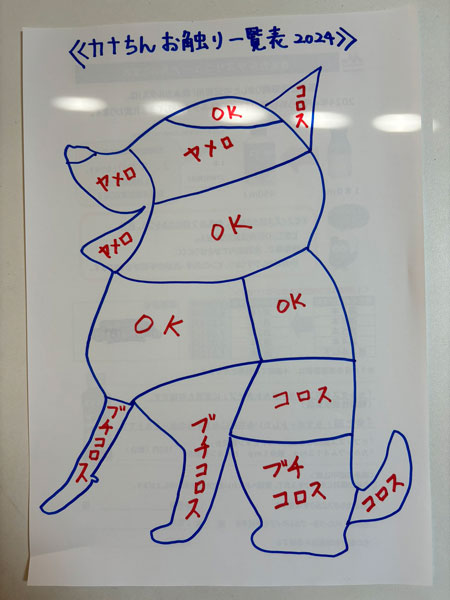 《カナちんお触り一覧表2024》
OK
コロス
ヤメロ
ヤメロ
ヤメロ
OK
OK
OK
コロス
ブチコロス
ブチコロス
ブチ
コロス
コロス